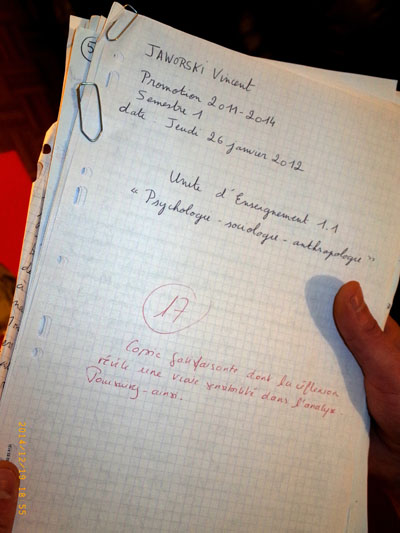 5
JAWORSKI Vincent
Promotion 2011-2014
Semestre 1
date Jeudi 26 janvier 2012
Unité d'Enseignement 1.1
"Psychologie - sociologie - anthropologie"
17
Copie satisfaisante dont la réflexion
révèle une vraie sensibilité dans l'analyse
Poursuivez - ainsi.
2014/12/19 18:55